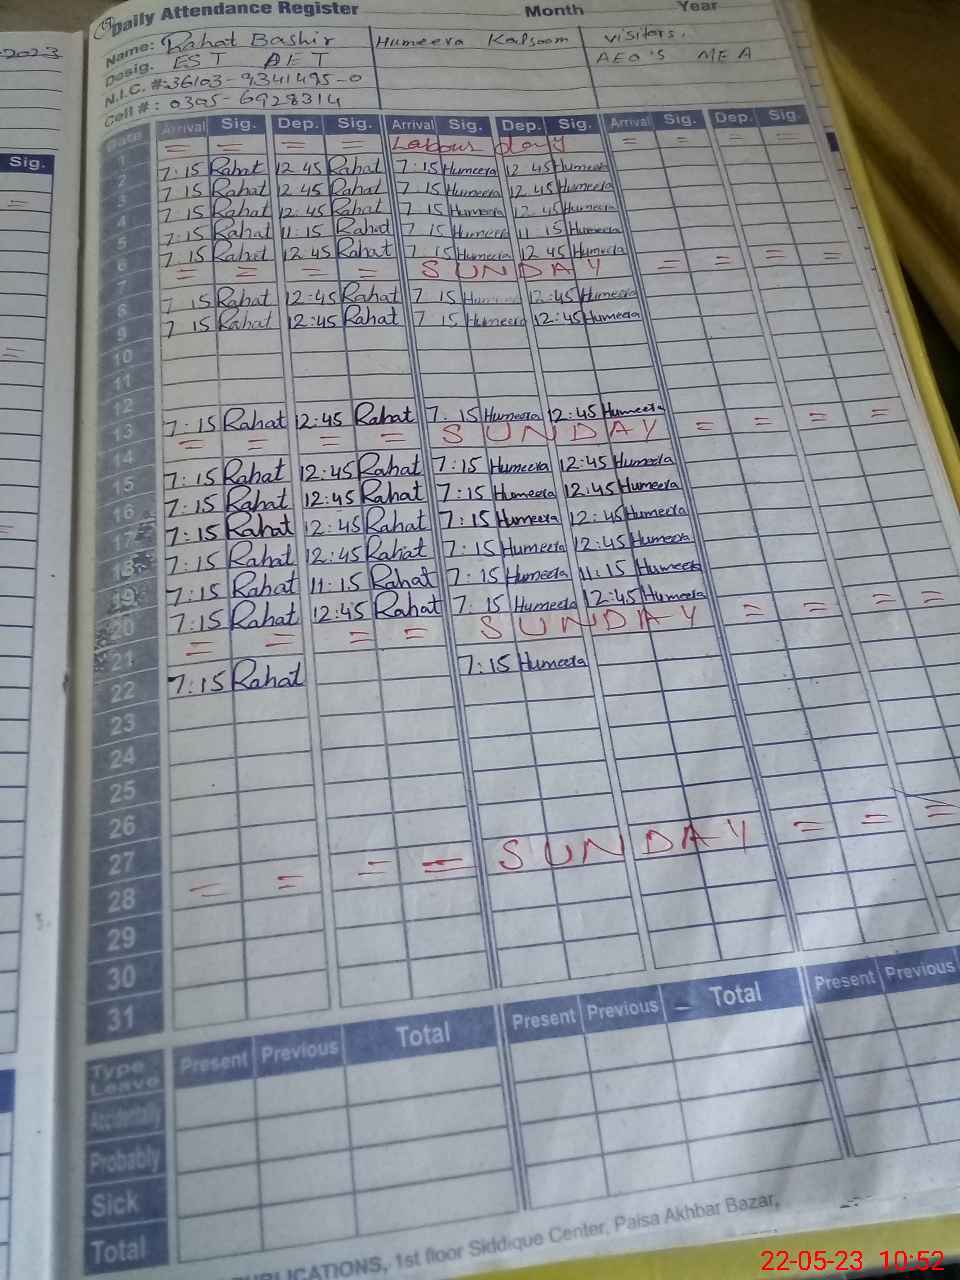 2023
Daily Attendance Register Month Year
Name: Rahat Bashir Humeera Kalsoom visitors.
Desig. EST AET AEO'S MEA
N.I.C. #:36103-9341495-0
Cell #: 0305-6928314
Sig.
Date Arrival Sig. Dep. Sig. Arrival Sig. Dep. Sig. Arrival Sig. Dep. Sig.
1 = = = = Labour day = = = =
2 7:15 Rahat 12 45 Rahat 7:15 Humeera 12 45 Humeera
3 7 15 Rahat 12 45 Rahat 7 15 Humeera 12 45 Humeera
4 7 15 Rahat 12:45 Rahat 7 15 Humeera 12 45 Humeera
5 7:15 Rahat 11:15 Rahat 7 15 Humeera 11 15 Humeera
6 7 15 Rahat 12:45 Rahat 7 15 Humeera 12 45 Humeera
7 = = = = SUNDAY = = = =
8 7 15 Rahat 12:45 Rahat 7 15 Humeera 12:45 Humeera
9 7 15 Rahat 12:45 Rahat 7 15 Humeera 12:45 Humeera
10
11
12
13 7:15 Rahat 12:45 Rahat 7:15 Humeera 12:45 Humeera
14 = = = = SUNDAY = = = =
15 7:15 Rahat 12:45 Rahat 7:15 Humeera 12:45 Humeera
16 7:15 Rahat 12:45 Rahat 7:15 Humeera 12:45 Humeera
17 7:15 Rahat 12:45 Rahat 7:15 Humeera 12:45 Humeera
18 7:15 Rahat 12:45 Rahat 7:15 Humeera 12:45 Humeera
19 7:15 Rahat 11:15 Rahat 7:15 Humeera 11:15 Humeera
20 7:15 Rahat 12:45 Rahat 7:15 Humeera 12:45 Humeera
21 = = = = SUNDAY = = = =
22 7:15 Rahat 7:15 Humeera
23
24
25
26
27
28 = = = = SUNDAY = = =
29
30
31
Type Leave Present Previous Total Present Previous Total Present Previous
Accidentally
Probably
Sick
Total
PUBLICATIONS, 1st floor Siddique Center, Paisa Akhbar Bazar,
22-05-23 10:52